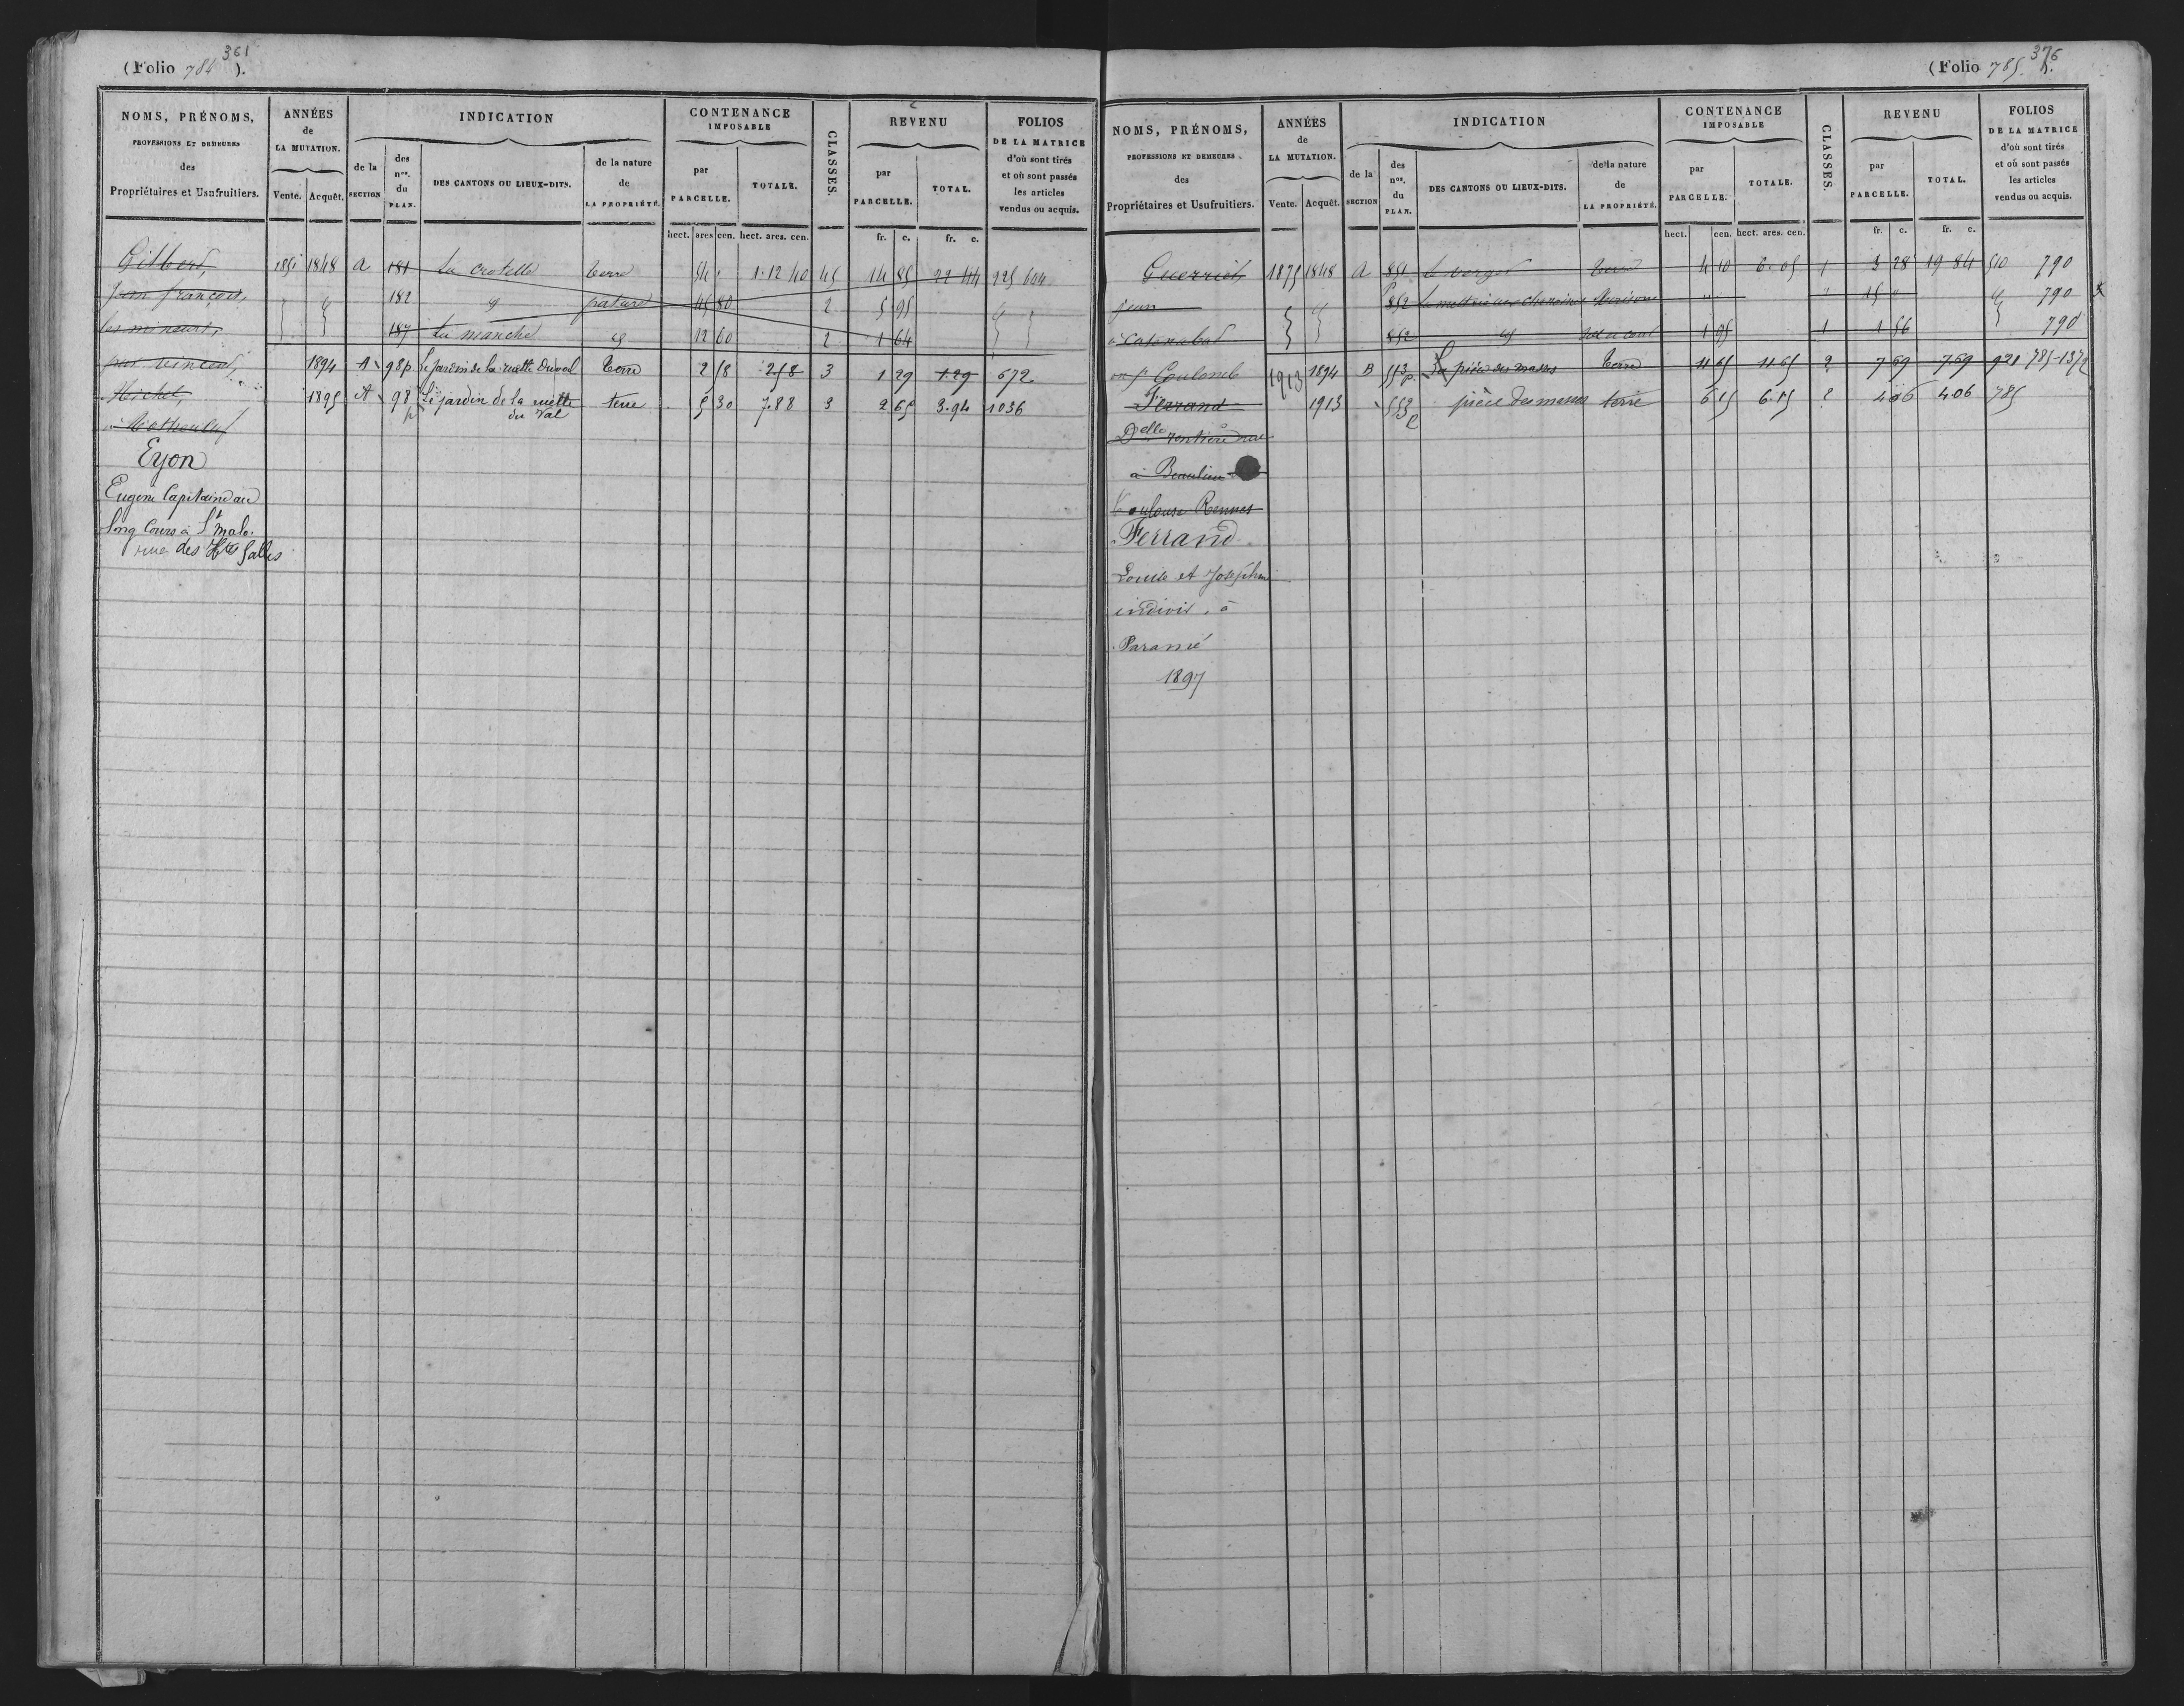 (Folio 784 361).
NOMS, PRÉNOMS, PROFESSIONS ET DEMEURES des Propriétaires et Usufruitiers.
ANNÉES de LA MUTATION. Vente. Acquêt.
INDICATION
de la SECTION
des nos. du PLAN.
DES CANTONS OU LIEUX-DITS.
de la nature de LA PROPRIÉTÉ.
CONTENANCE IMPOSABLE
par PARCELLE. TOTALE.
CLASSES.
REVENU
par PARCELLE. TOTAL.
FOLIOS DE LA MATRICE d'où sont tirés et où sont passés les articles vendus ou acquis.
hect. ares cen. hect. ares. cen. fr. c. fr. c.
Gilbert, 1851 1848 A 181 La crotelle terre 54 " 1.12 40 4 5 14 85 22 44 225 604
jean françois, 182 id pature 45 80 2 5 95 id
les mineurs, 187 La manche id 12 60 2 1 64
par vincent, 1894 A 98p Le jardin de la ruette du val Terre 2 58 2.58 3 1 29 1.29 672
Michel, 1895 A 98p Le jardin de la ruette du Val terre 5 30 7.88 3 2 65 3.94 1036
Eyon
Eugène Capitaine au
long Cours à St Malo.
rue des Htes Salles
(Folio 785. 376).
NOMS, PRÉNOMS, PROFESSIONS ET DEMEURES des Propriétaires et Usufruitiers.
ANNÉES de LA MUTATION. Vente. Acquêt.
INDICATION
de la SECTION
des nos. du PLAN.
DES CANTONS OU LIEUX-DITS.
de la nature de LA PROPRIÉTÉ.
CONTENANCE IMPOSABLE
par PARCELLE. TOTALE.
CLASSES.
REVENU
par PARCELLE. TOTAL.
FOLIOS DE LA MATRICE d'où sont tirés et où sont passés les articles vendus ou acquis.
hect. cen. hect. ares. cen. fr. c. fr. c.
1875 1848 A 851 le verger terre 4 10 6.05 1 3 28 19 84 510 790
jean id 852 Maison " " 15 " id 790
852 id 1 95 1 1 56 790
en St Coulomb 1913 1894 B 553p La pièce des masses Terre 11 65 11 65 2 7 69 7.69 921 785-1372
Ferrand 1913 553p pièce des masses terre 6 15 6.15 2 4 06 4.06 785
Delle rentière rue
à Beaulieu
Toulouse Rennes
Ferrand
Louise et Joséphine
indivis. à
Paramé
1897